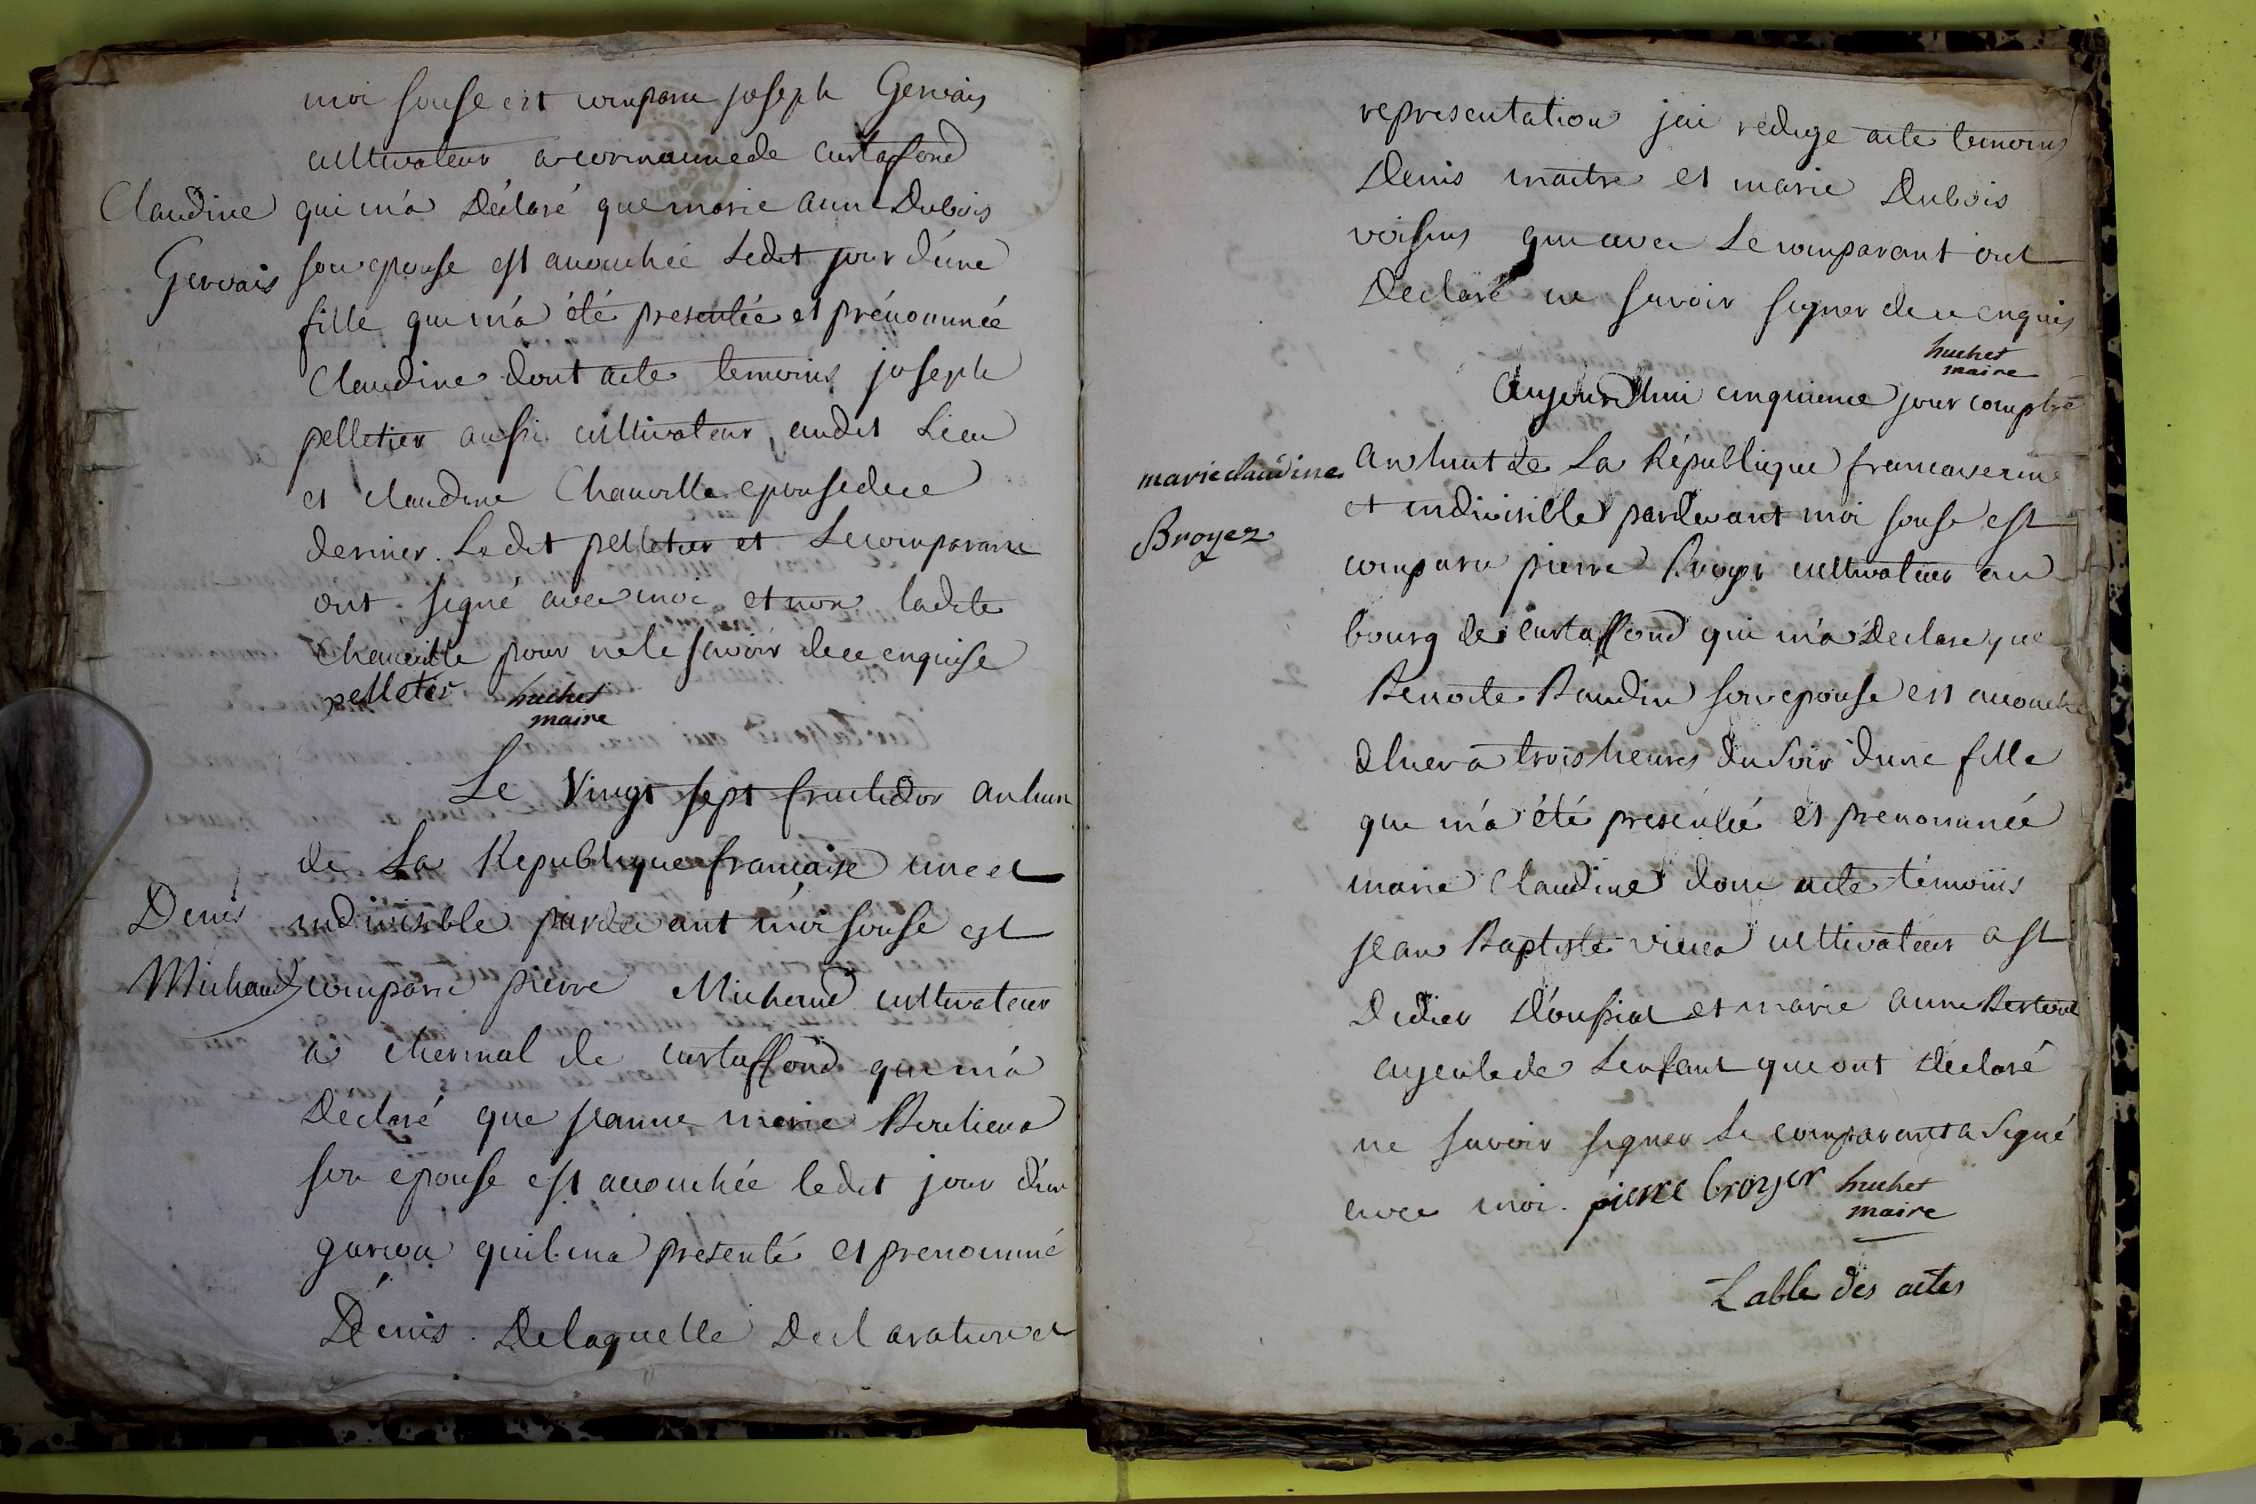 moi sousé est comparu joseph Gervais
cultivateur a cormaunede curtaffond
Claudine
qui m'a Déclaré que marie anne Dubois
Gervais
son epouse est acouchée Ledit jour d'une
fille qui m'a été presentée et prénommée
Claudine dont acte temoins joseph
pelletier aussi cultivateur audit Lieu
et claudine Chanville epouse de ce
dernier. Ledit pelletier et Le comparant
ont signé avec moi et non ladite
Chanville pour ne le savoir de ce enquise
pelletier
huchet
maire
Le Vingt sept fructidor an huit
de La Republique francaise une et
Denis
indivisible pardevant moi sousé est
Michaud
comparu pierre Michaud cultivateur
a chermal de curtaffond qui m'a
Declaré que jeanne marie
son epouse est acouchée ledit jour d'un
garcon quil ma presenté et prenommé
Denis. De laquelle Declaration et
representation jai redige acte temoins
Denis maitre et marie Dubois
voisins qui avec Le comparant ont
Declaré ne savoir signer de ce enquis
huchet
maire
Aujourdhui cinquieme jour complre
marie claudine
an huit de La République francaise une
Broyez
et indivisible pardevant moi sousé est
comparu pierre Broyer cultivateur au
bourg de curtaffond qui m'a Declare que
Benoite Baudin son epouse est acouchée
dhier a trois heures du soir d'une fille
qui m'a été presentée et prenommée
marie Claudine donc acte témoins
jean Baptiste cultivateur a St
Didier D'oussiat et marie anne
ayeule de L'enfant qui ont déclaré
ne savoir signer Le comparant a signé
avec moi. pierre broyer
huchet
maire
Table des actes